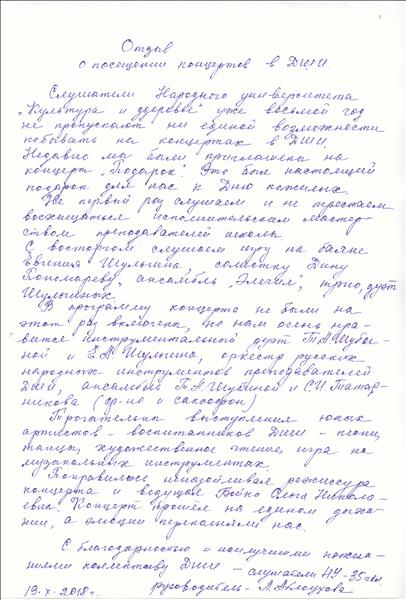 Отзыв
о посещении концертов в ДШИ
Слушатели Народного университета
„Культура и здоровье" уже восьмой год
не пропускают ни единой возможности
побывать на концертах в ДШИ.
Недавно мы были приглашены на
концерт „Подарок". Это был настоящий
подарок для нас к Дню пожилых.
Не первый раз слушаем и не перестаем
восхищаться исполнительским мастер-
ством преподавателей школы.
С восторгом слушаем игру на баяне
Евгения Шульгина, солистку Дину
Пономареву, ансамбль „Элегия", трио, дуэт
Шульгиных.
В программу концерта не были на
этот раз включены, но нам очень нра-
вится инструментальный дуэт Т.А. Шуби-
ной и Е.А. Шульгина, оркестр русских
народных инструментов преподавателей
ДШИ, ансамбль Т.А. Шубиной и С.И. Татар-
никова (ф-но и саксофон)
Трогательны выступления юных
артистов - воспитанников ДШИ - песни,
танцы, художественное чтение, игра на
музыкальных инструментах.
Понравилась ненавязчивая режиссура
концерта и ведущая Бойко Ольга Никола-
евна. Концерт прошёл на едином дыха-
нии, а эмоции переполняли нас.
С благодарностью и наилучшими пожела-
ниями коллективу ДШИ - слушатели НУ - 35 чел.
19.X.2018г. руководитель -